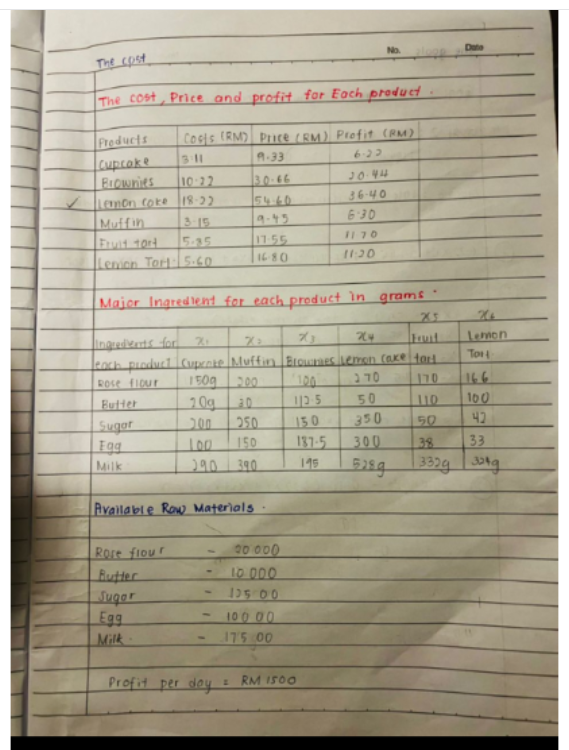 No. Date
The cost
The cost, Price and profit for Each product.
Products Costs (RM) Price (RM) Profit (RM)
Cupcake 3.11 9.33 6.22
Brownies 10.22 30.66 20.44
✓ Lemon cake 18.22 54.60 36.40
Muffin 3.15 9.45 6.30
Fruit Tart 5.85 17.55 11.70
Lemon Tart 5.60 16.80 11.20
Major Ingredient for each product in grams.
x5 x6
Ingredients for x1 x2 x3 x4 Fruit Lemon
each product Cupcake Muffin Brownies Lemon cake tart Tart
Rose flour 150g 200 100 270 170 166
Butter 20g 30 112.5 50 110 100
Sugar 200 250 150 350 50 42
Egg 100 150 187.5 300 38 33
Milk 290 390 195 528g 332g 324g
Available Raw Materials.
Rose flour - 20 000
Butter - 10 000
Sugar - 125 00
Egg - 100 00
Milk - 175 00
Profit per day = RM 1500